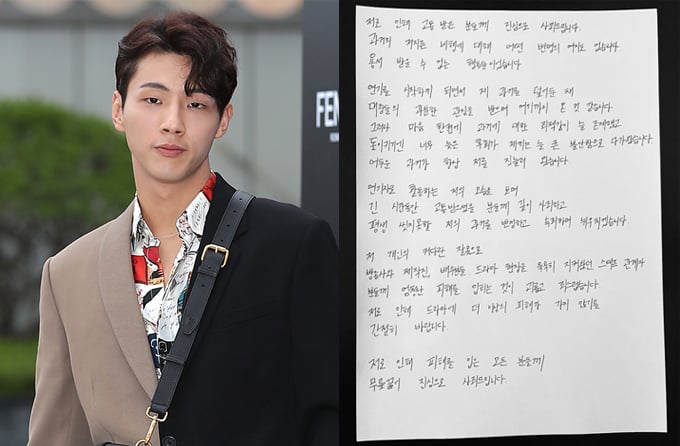 FEN
저로 인해 고통 받은 분들께 진심으로 사죄드립니다.
과거에 저지른 비행에 대해 어떤 변명의 여지도 없습니다.
용서 받을 수 없는 행동들이었습니다.
연기를 시작하게 되면서 제 과거를 덮어둔 채
대중들의 과분한 관심을 받으며 여기까지 온 것 같습니다.
그러나 마음 한켠에 과거에 대한 죄책감이 늘 존재했고
돌이키기엔 너무 늦은 후회가 저에게는 늘 큰 불안함으로 다가왔습니다.
어두운 과거가 항상 저를 짓눌러 왔습니다.
연기자로 활동하는 저의 모습을 보며
긴 시간동안 고통받으셨을 분들께 깊이 사죄하고
평생 씻지못할 저의 과거를 반성하고 속죄하며 살겠습니다.
저 개인의 커다란 잘못으로
방송사와 제작진, 배우분들, 드라마 현장을 묵묵히 지켜왔던 스텝분들 관계자
분들께 엄청난 피해를 입히는 것이 괴롭고 죄스럽습니다.
저로 인해 드라마에 더 이상의 피해가 가지 않기를
간절히 바랍니다.
저로 인해 피해를 입은 모든 분들께
무릎꿇어 진심으로 사죄드립니다.